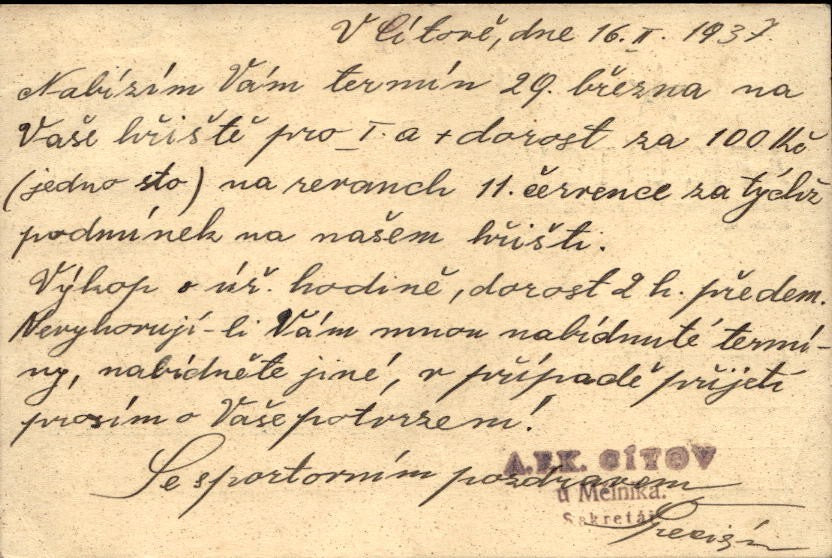 V Cítově, dne 16. II. 1937.
Nabízím Vám termín 29. března na
Vaše hřiště pro I. a + dorost za 100 Kč
(jedno sto) na revanch 11. července za týchž
podmínek na našem hřišti.
Výkop o úř. hodině, dorost 2 h. předem.
Nevyhovují-li Vám mnou nabídnuté termí-
ny, nabídněte jiné, v případě přijetí
prosím o Vaše potvrzení!
Se sportovním pozdravem
A.F.K. CÍTOV
u Mělníka.
Sekretář